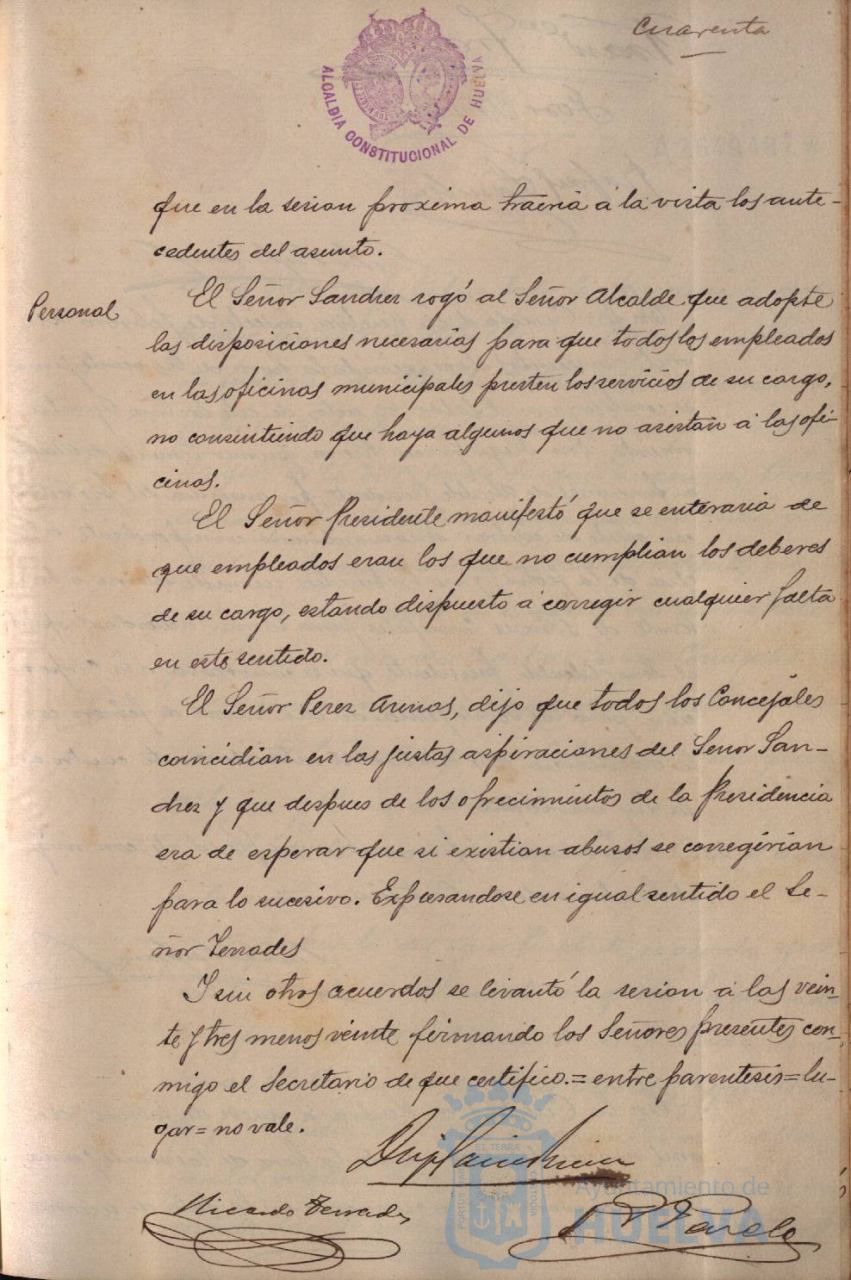 Cuarenta
ALCALDIA CONSTITUCIONAL DE HUELVA
que en la sesion proxima traeria á la vista los ante-
cedentes del asunto.
Personal
El Señor Sanchez rogó al Señor Alcalde que adopte
las disposiciones necesarias para que todos los empleados
en las oficinas municipales presten los servicios de su cargo,
no consintiendo que haya algunos que no asistan á las ofi-
cinas.
El Señor Presidente manifestó que se enteraria de
que empleados eran los que no cumplian los deberes
de su cargo, estando dispuesto á corregir cualquier falta
en este sentido.
El Señor Perez Arenas, dijo que todos los Concejales
coincidian en las justas aspiraciones del Señor San-
chez y que despues de los ofrecimientos de la Presidencia
era de esperar que si existian abusos se corregirian
para lo sucesivo. Expresandose en igual sentido el Se-
ñor Terrades
Y sin otros acuerdos se levantó la sesion á las vein-
te y tres menos veinte firmando los Señores presentes con-
migo el Secretario de que certifico.=entre parentesis=lu-
gar=no vale.
Ayuntamiento de
HUELVA
Ricardo Terrades